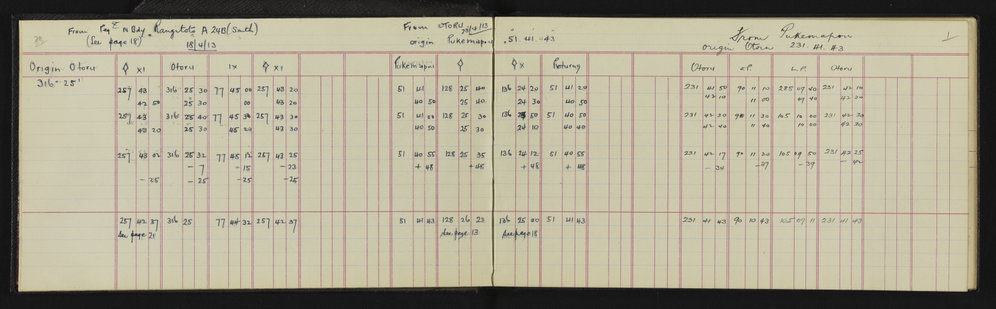 From Peg N Bdy Rangitoto A 24B (South)
(See page 18)
18/4/13
Origin Otoru ⌽ XI Otoru IX ⌽ XI
316-25'
257 43 316 25 30 77 45 00 257 43 20
42 50 25 30 00 43 20
257 43 316 25 40 77 45 30 257 43 30
43 20 25 30 45 20 43 30
257 43 02 316 25 32 77 45 12 257 43 25
-7 -15 -23
-25 -25 -25 -25
257 42 37 316 25 77 44 32 257 42 37
See page 21
From OTORU 23/4/13
origin Pukemapou 51. 41. 43
Pukemapou ⌽ ⌽ X Returng
51 41 128 25 40 136 24 20 51 41 20
40 50 25 40 24 30 40 50
51 41 00 128 25 30 136 50 51 40 50
40 50 25 30 24 10 40 40
51 40 55 128 25 35 136 24 12 51 40 55
+48 +48 +48 +48
51 41 43 128 26 23 136 25 00 51 41 43
See page 13 See page 18
From Pukemapou
origin Otoru 231. 41. 43
1
Otoru L.P. Otoru
231 41 50 90 11 10 285 09 40 231 42 10
42 10 11 00 09 40 42 20
231 42 30 90 11 30 105 10 00 231 42 30
42 40 11 40 10 00 42 30
231 42 17 90 11 20 105 09 50 231 42 25
-34 -37 -39 -42
231 41 43 90 10 43 105 09 11 231 41 43